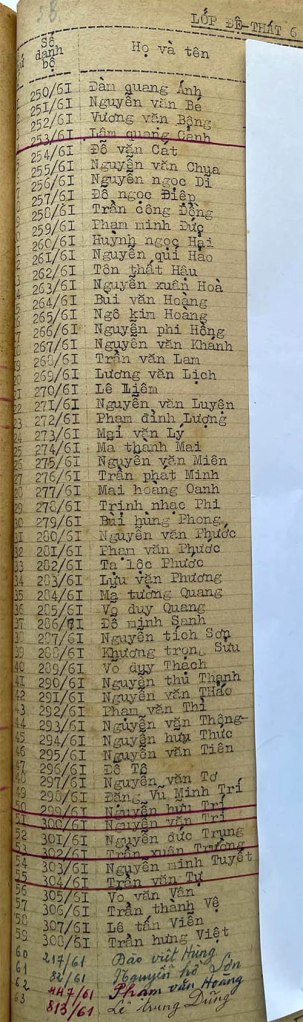 LỚP ĐỆ-THẤT 6
Số danh bộ Họ và tên
250/61 Đàm quang Ảnh
251/61 Nguyễn văn Bé
252/61 Vương văn Bông
253/61 Lâm quang Cảnh
254/61 Đỗ văn Cát
255/61 Nguyễn văn Chua
256/61 Nguyễn ngọc Di
257/61 Đỗ ngọc Điệp
258/61 Trần công Đồng
259/61 Phạm minh Đức
260/61 Huỳnh ngọc Hải
261/61 Nguyễn quí Hảo
262/61 Tôn thất Hậu
263/61 Nguyễn xuân Hoà
264/61 Bùi văn Hoàng
265/61 Ngô kim Hoàng
266/61 Nguyễn phi Hồng
267/61 Nguyễn văn Khánh
268/61 Trần văn Lam
269/61 Lương văn Lịch
270/61 Lê Liêm
271/61 Nguyễn văn Luyện
272/61 Phạm đình Lượng
273/61 Mai văn Lý
274/61 Ma thành Mai
275/61 Nguyễn văn Miên
276/61 Trần phát Minh
277/61 Mai hoàng Oanh
278/61 Trịnh nhạc Phi
279/61 Bùi hùng Phong
280/61 Nguyễn văn Phước
281/61 Phạm văn Phước
282/61 Tạ lộc Phước
283/61 Lưu văn Phương
284/61 Mạ tường Quang
285/61 Võ duy Quang
286/61 Đỗ minh Sanh
287/61 Nguyễn tích Sơn
288/61 Khương trọng Sửu
289/61 Võ duy Thạch
290/61 Nguyễn thủ Thành
291/61 Nguyễn văn THảo
292/61 Phạm văn Thi
293/61 Nguyễn văn Thông
294/61 Nguyễn hữu Thức
295/61 Nguyễn văn Tiên
296/61 Đỗ Tô
297/61 Nguyễn văn Tơ
298/61 Đặng Vũ Minh Trí
299/61 Nguyễn hữu Trí
300/61 Nguyễn văn Trí
301/61 Nguyễn đức Trung
302/61 Trần xuân Trường
303/61 Nguyễn minh Tuyết
304/61 Trần văn Tư
305/61 Võ văn Vân
306/61 Trần thành Vệ
307/61 Lê tấn Viễn
308/61 Trần hưng Việt
60 217/61 Đào viết Hùng
61 82/61 Nguyễn hồ Sơn
62 447/61 Phạm văn Hoàng
63 813/61 Lê Trung Dũng